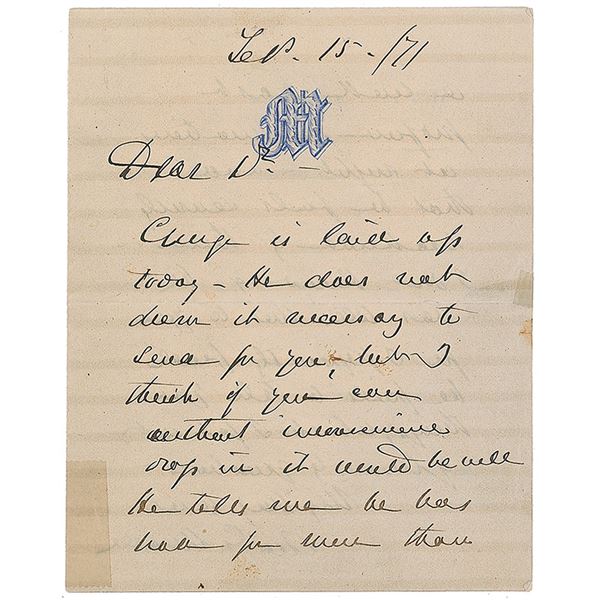 Sep. 15 - /71
M
Dear Dr. -
George is laid up
today - He does not
deem it necessary to
send for you, but I
think if you can
without inconvenience
drop in it would be well
He tells me he has
had for more than